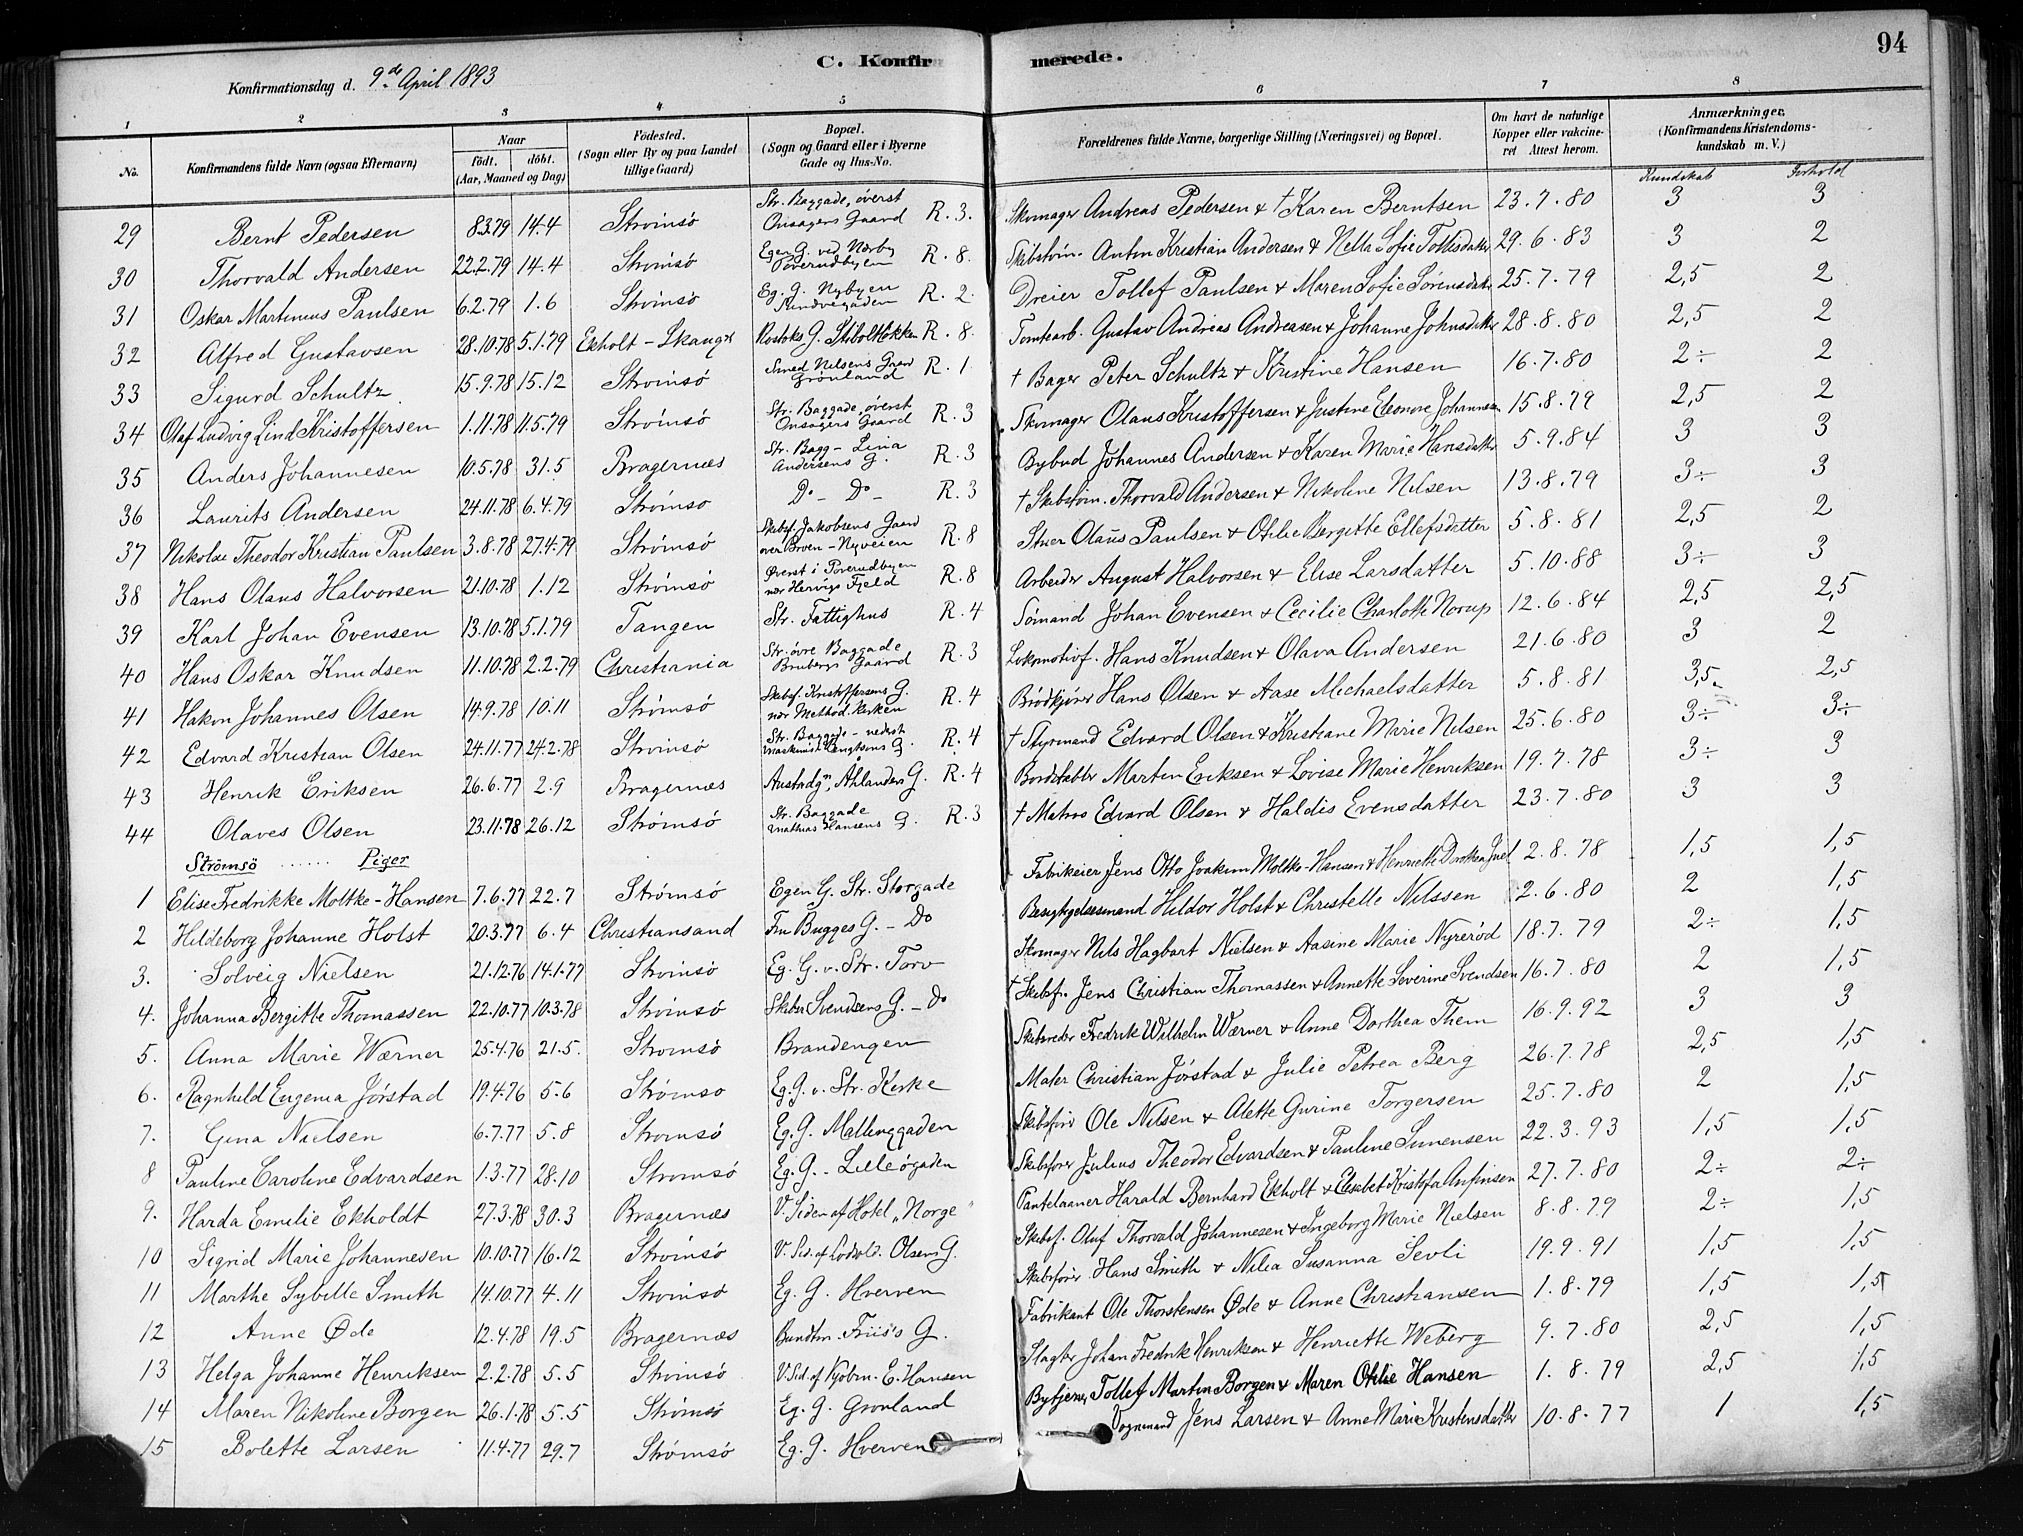 94
C. Konfirmerede.
Konfirmationsdag d. 9de April 1893
1 2 3 4 5 6 7 8
No. Konfirmandens fulde Navn (ogsaa Efternavn) Naar født. døbt. (Aar, Maaned og Dag) Fødested. (Sogn eller By og paa Landet tillige Gaard) Bopæl. (Sogn og Gaard eller i Byerne Gade og Hus-No. Forældrenes fulde Navne, borgerlige Stilling (Næringsvei) og Bopæl. Om havt de naturlige Kopper eller vakcineret Attest herom. Anmærkninger. (Konfirmandens Kristendomskundskab m. V.)
Kundskab Forhold
29 Bernt Pedersen 8.3.79 14.4 Strømsø Str. Baggade, øverst Onsagers Gaard R. 3. Skomager Andreas Pedersen & † Karen Berntsen 23.7.80 3 3
30 Thorvald Andersen 22.2.79 14.4 Strømsø Egen G. ved Nørby Toverudbyen R. 8. Skibstøm. Anton Kristian Andersen & Nella Sofie Tollefsdatter 29.6.83 3 2
31 Oskar Martinius Paulsen 6.2.79 1.6 Strømsø Eg. G. Nybyen R. 2. Dreier Tollef Paulsen & Maren Sofie Sørensdatter 25.7.79 2,5 2
32 Alfred Gustavsen 28.10.78 5.1.79 Ekholt - Skauger Rostoks G. Skiboltløkken R. 8. Tomtearb. Gustav Andreas Andreasen & Johanne Johnsdatter 28.8.80 2,5 2
33 Sigurd Schultz 15.9.78 15.12 Strømsø Smed Nilsens Gaard Grønland R. 1 † Bager Peter Schultz & Kristine Hansen 16.7.80 2÷ 2
34 Olaf Ludvig Lind Kristoffersen 1.11.78 11.5.79 Strømsø Str. Baggade, øverst Onsagers Gaard R. 3 Skomager Olaus Kristoffersen & Justine Eleonore Johannesen 15.8.79 2,5 2
35 Anders Johannesen 10.5.78 31.5 Bragernæs Str. Bagg - Lina Andersens G. R. 3 Bybud Johannes Andersen & Karen Marie Hansdatter 5.9.84 3 3
36 Laurits Andersen 24.11.78 6.4.79 Strømsø Do - Do - R. 3 † Skibstøm. Thorvald Andersen & Nikoline Nilsen 13.8.79 3÷ 3
37 Nikolai Theodor Kristian Paulsen 3.8.78 27.4.79 Strømsø Skibsf. Jakobsens Gaard over Broen - Nyveien R. 8 Stuer Olaus Paulsen & Otilie Bergitte Ellefsdatter 5.8.81 2,5 2
38 Hans Olaus Halvorsen 21.10.78 1.12 Strømsø Øverst i Toverudbyen nær Hervigs Fjeld R. 8 Arbeider August Halvorsen & Elise Larsdatter 5.10.88 3÷ 3
39 Karl Johan Evensen 13.10.78 5.1.79 Tangen Str. Fattighus R. 4 Sømand Johan Evensen & Cecilie Charlotte Norup 12.6.84 2,5 2,5
40 Hans Oskar Knudsen 11.10.78 2.2.79 Christiania Str. øvre Baggade Brubergs Gaard R. 3 Lokomotivf. Hans Knudsen & Olava Andersen 21.6.80 3 2
41 Hakon Johannes Olsen 14.9.78 10.11 Strømsø Skibsf. Kristoffersens G. nær Method. Kirken R. 4 Brødkjører Hans Olsen & Aase Michaelsdatter 5.8.81 3,5 2,5
42 Edvard Kristian Olsen 24.11.77 24.2.78 Strømsø Str. Baggade - nederst Maskinist Bengtsens G. R. 4 † Styrmand Edvard Olsen & Kristiane Marie Nilsen 25.6.80 3÷ 3÷
43 Henrik Eriksen 26.6.77 2.9 Bragernæs Austadg., Ahlanders G. R. 4 Bordstabler Martin Eriksen & Lovise Marie Henriksen 19.7.78 3÷ 3
44 Olaves Olsen 23.11.78 26.12 Strømsø Str. Baggade Mathias Hansens G. R. 3 † Matros Edvard Olsen & Haldis Evensdatter 23.7.80 3 3
Strømsø ...... Piger
1 Elise Fredrikke Moltke-Hansen 7.6.77 22.7 Strømsø Egen G. Str. Storgade Fabrikeier Jens Otto Joakim Moltke-Hansen & Henriette Dorothea Juel 2.8.78 1,5 1,5
2 Hildeborg Johanne Holst 20.3.77 6.4 Christiansand Fru Bugges G. - Do Besigtigelsesmand Hildor Holst & Christelle Nilssen 2.6.80 2 1,5
3. Solveig Nielsen 21.12.76 14.1.77 Strømsø Eg. G. v. Str. Torv Skomager Nils Hagbart Nielsen & Aasine Marie Nyrerød 18.7.79 2÷ 1,5
4. Johanna Bergitte Thomassen 22.10.77 10.3.78 Strømsø Skiber Svendsens G. - Do † Skibsf. Jens Christian Thomassen & Annette Severine Svendsen 16.7.80 2 1,5
5. Anna Marie Wærner 25.4.76 21.5. Strømsø Brandengen Skibsreder Fredrik Wilhelm Wærner & Anne Dorthea Them 16.9.92 3 3
6. Ragnhild Eugenia Jørstad 19.4.76 5.6 Strømsø Eg. G. v. Str. Kirke Maler Christian Jørstad & Julie Petrea Berg 26.7.78 2,5 1,5
7. Gina Nielsen 6.7.77 5.8 Strømsø Eg. G. Mallinggaden Skibsfører Ole Nilsen & Alette Gurine Torgersen 25.7.80 2 1,5
8 Pauline Caroline Edvardsen 1.3.77 28.10 Strømsø Eg. G. - Lilleøgaden Skibsfører Julius Theodor Edvardsen & Pauline Simensen 22.3.93 1,5 1,5
9. Harda Emilie Ekholdt 27.3.78 30.3 Bragernæs V. Siden af Hotel „Norge" Pantelaaner Harald Bernhard Ekholt & Elisabet Kristofa Anfinsen 27.7.80 2÷ 2÷
10 Sigrid Marie Johannesen 10.10.77 16.12 Strømsø V. Sid. af Lodsold. Olsens G. Skibsf. Oluf Thorvald Johannesen & Ingeborg Marie Nielsen 8.8.79 2÷ 1,5
11 Marthe Sybille Smith 14.10.77 4.11 Strømsø Eg. G. Hverven Skibsfører Hans Smith & Nilia Susanna Sevli 19.9.91 1,5 1,5
12 Anne Øde 12.4.78 19.5 Bragernæs Bundtm. Friis's G. Fabrikant Ole Thorstensen Øde & Anne Christiansen 1.8.79 1,5 1,5
13 Helga Johanne Henriksen 2.2.78 5.5 Strømsø V. Sid. af Kjøbm. E. Hansen Slagter Johan Fredrik Henriksen & Henriette Weberg 9.7.80 2,5 1,5
14 Maren Nikoline Borgen 26.1.78 5.5 Strømsø Eg. G. Grønland Bytjener Tollef Martin Borgen & Maren Otilie Hansen 1.8.79 2,5 1,5
15 Bolette Larsen 11.4.77 29.7 Strømsø Eg. G. Hverven Vognmand Jens Larsen & Anne Marie Kristensdatter 10.8.77 1 1,5